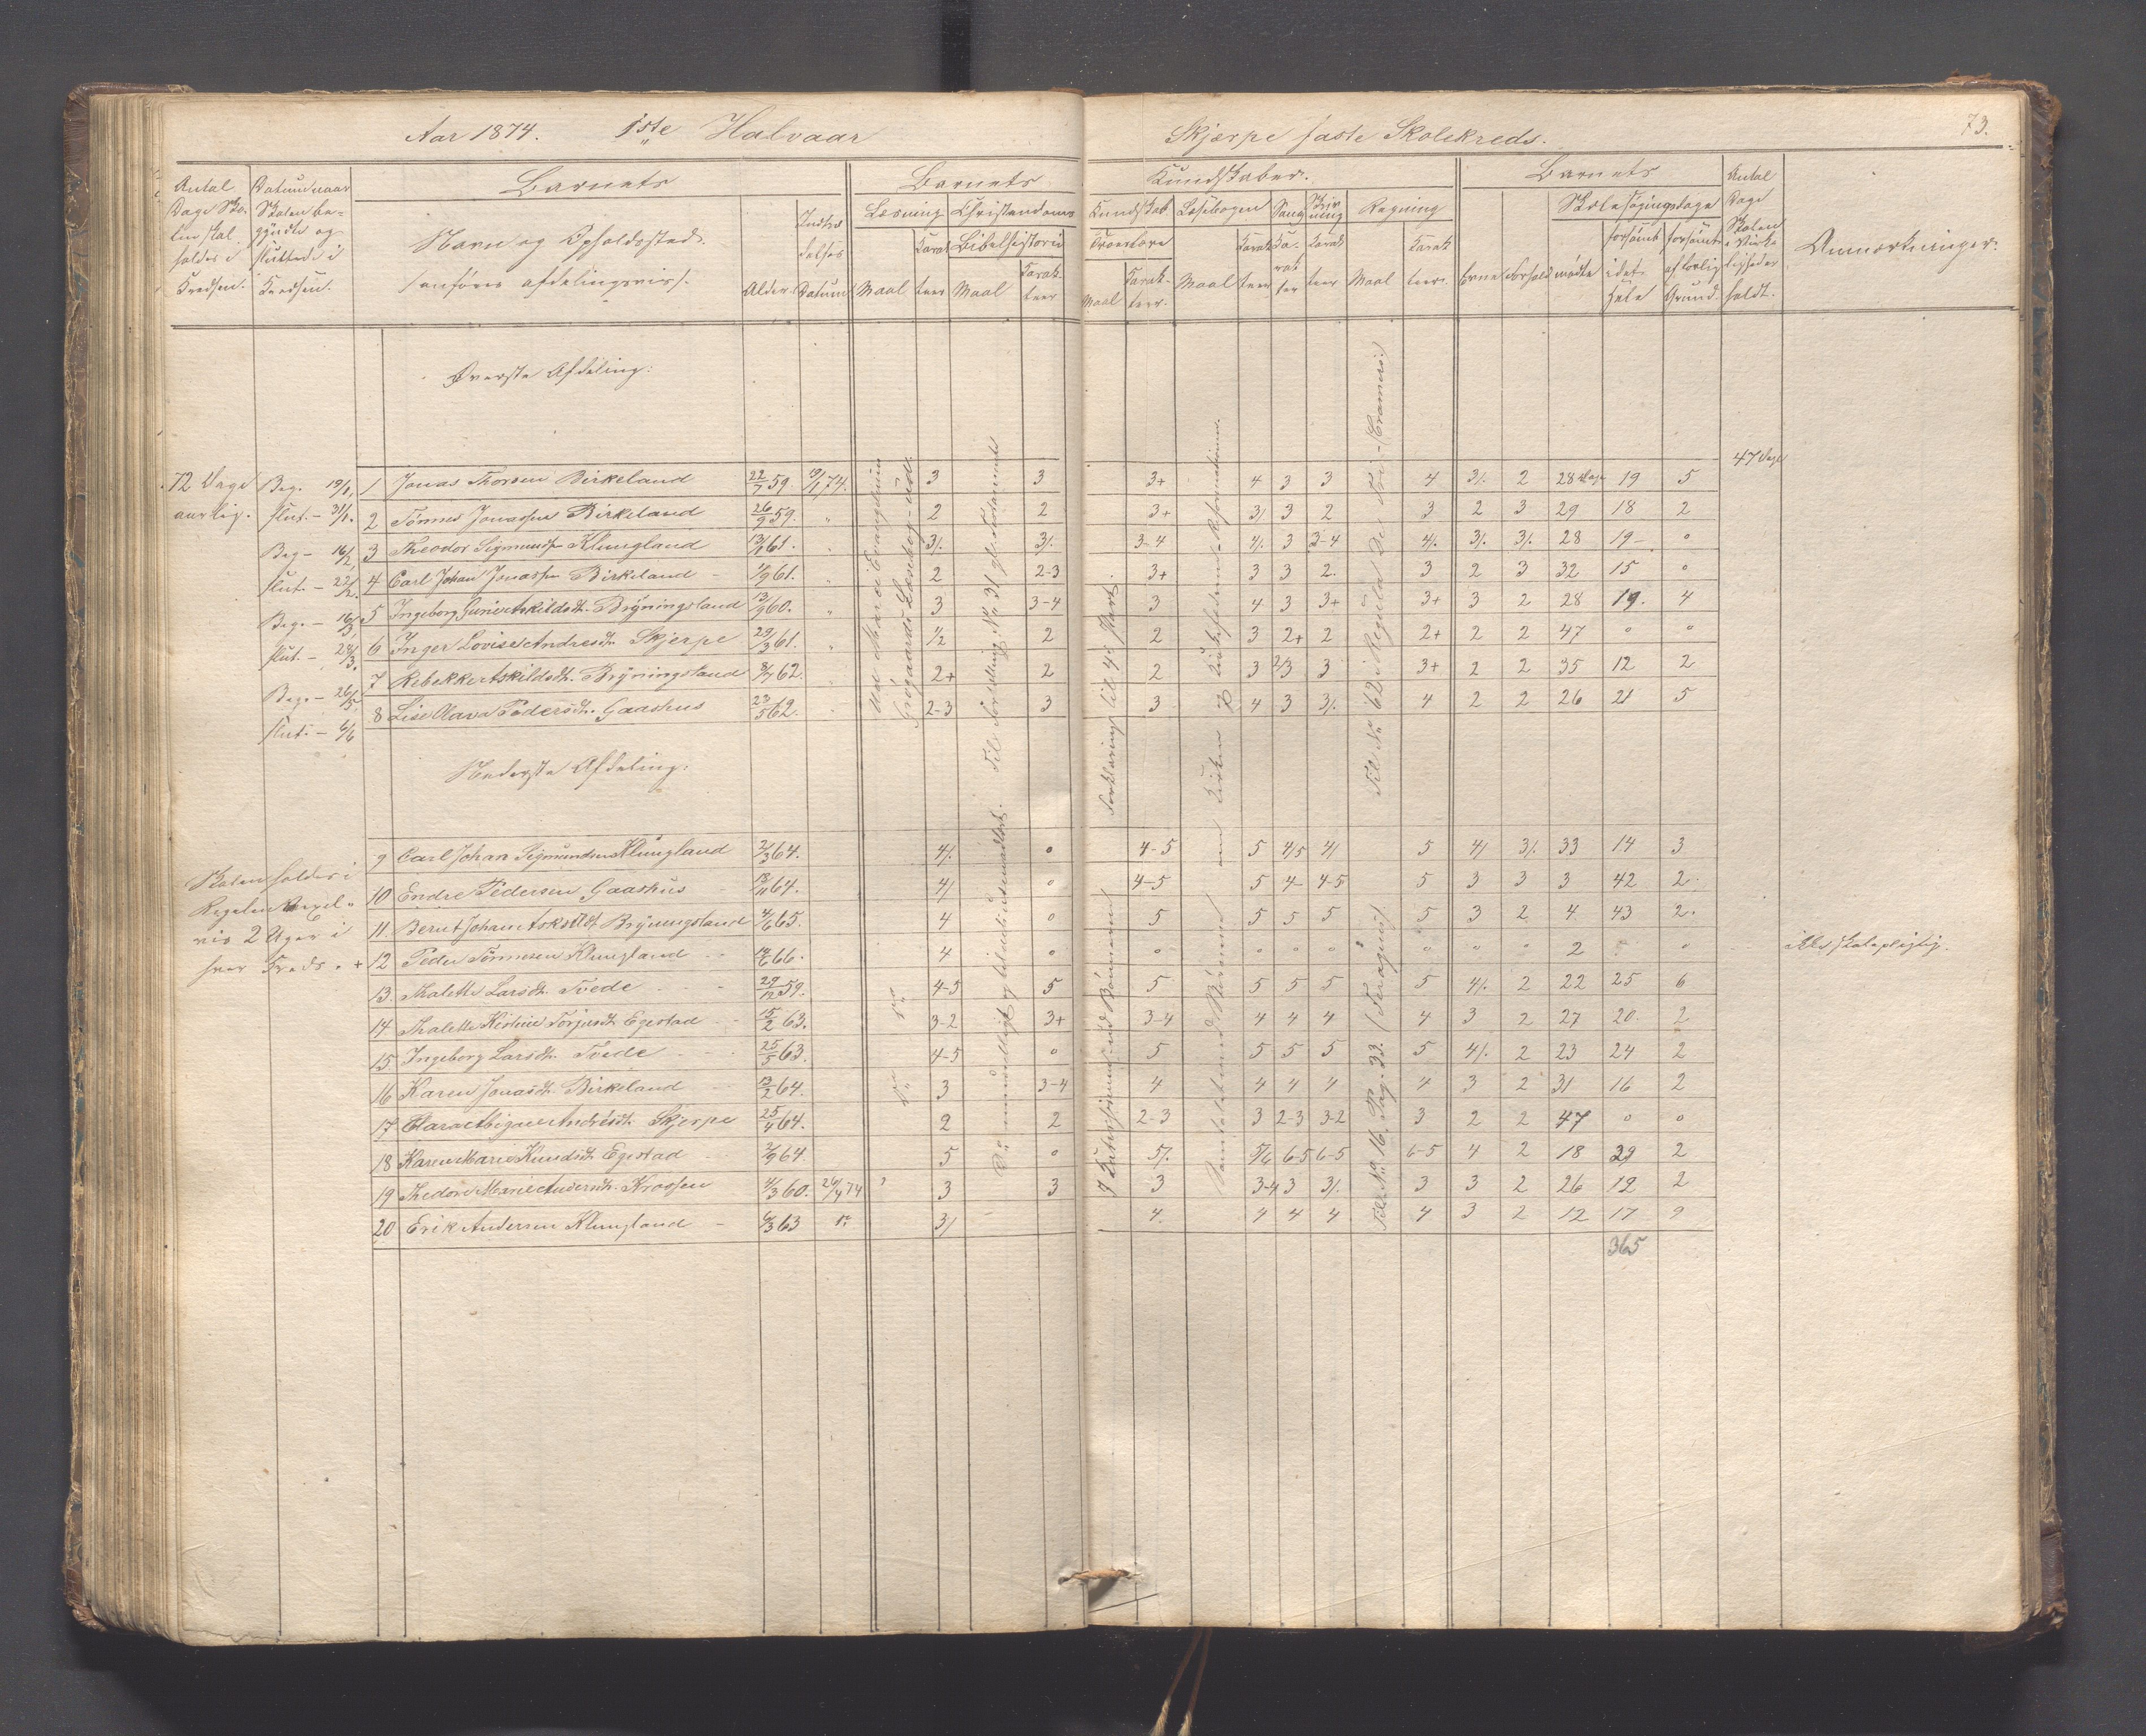 Aar 1874. 1ste Halvaar
Skjærpe faste Skolekreds.
73.
Antal Dage Skolen skal holdes i Kredsen.
Datum naar Skolen begyndte og sluttede i Kredsen.
Barnets
Navn og Opholdssted.
(anføres afdelingsvis).
Alder.
Indtrædelses Datum
Barnets
Kundskaber.
Læsning
Maal
Karakteer
Christendoms
Bibelhistorie
Maal
Karakteer
Kundskab
Troeslære
Maal
Karakteer.
Læsebogen
Maal
Karakteer
Sang
Karakter
Skrivning
Karakteer
Regning
Maal
Karakteer.
Barnets
Evne
Forhold
Skolesøgningsdage
mødte
forsømt i det Hele
forsømt af lovlig Grund.
Antal Dage Skolen i Virkeligheden holdt.
Anmærkninger.
Øverste Afdeling:
72 Dage aarlig.
Beg. 19/1, slut. - 31/1.
Beg - 16/2, slut. - 28/2.
Beg. - 16/3, slut. - 28/3.
Beg. - 26/5. slut. - 6/6
47 Dage
1 Jonas Thorsen Birkeland 22/7 59. 19/1 74. 3 3 3+ 4 3 3 4 3/. 2 28 Dage 19 5
2 Tønnes Jonassen Birkeland 26/9 59. " 2 2 3+ 3/ 3 2 3 2 3 29 18 2
3 Theodor Sigmunds. Klungland 13/1 61. " 3/. 3/. 3-4 4/. 3 3-4 4/. 3/. 3/. 28 19 - 0
4 Carl Johan Jonassen Birkeland - 1/9 61. " 2 2-3 3+ 3 3 2. 3 2 3 32 15 0
5 Ingeborg Gurie Askildsdt. Bryningsland 13/9 60. " 3 3-4 3 4 3 3+ 3+ 3 2 28 19. 4
6 Inger Lovise Andresdt. Skjerpe 29/3 61. " 1/2 2 2 3 2+ 2 2+ 2 2 47 0 0
7 Rebekke Askildsdt. Bryningsland 8/7 62. " 2+ 2 2 3 2/3 3 3+ 2 2 35 12 2
8 Lise Olava Pedersdt. Gaashus 23/5 62. " 2-3 3 3 4 3 3/. 4 2 2 26 21 5
Nederste Afdeling:
Skolen holdes i Regelen vexelvis 2 Uger i hver Kreds.
9 Carl Johan Sigmundsen Klungland 2/3 64. 4/. 0 4-5 5 4/5 4/ 5 4/ 3/. 33 14 3
10 Endre Pedersen Gaashus 13/11 64. 4/ 0 4-5 5 4- 4-5 5 3 3 3 42 2.
11. Bernt Johan Askildst. Bryningsland 4/6 65. 4 0 5 5 5 5 5 3 2 4 43 2.
+ 12 Peder Tønnesen Klungland 12/6 66. 4 0 0 0 0 0 0 0 0 2 0 ikke skolepligtig.
13. Malette Larsdt. Tvede 29/12 59. 4-5 5 5 5 5 5 5 4/. 2 22 25 6
14 Thalette Kistine Torjusdt. Egestad 15/2 63. 3-2 3+ 3-4 4 4 4 4 3 2 27 20. 2
15. Ingeborg Larsdt. Tvede 25/5 63. 4-5 0 5 5 5 5 5 4/. 2 23 24 2
16 Karen Jonasdt. Birkeland 13/2 64. 3 3-4 4 4 4 4 4 3 2 31 16 2
17 Clara Abigael Andresdt. Skjerpe 25/4 64. 2 2 2-3 3 2-3 3-2 3 2 2 47 0 0
18 Karen Marie Knudsdt. Egestad 2/9 64. 5 0 5/. 5/6 6-5 6-5 6-5 4 2 18 29 2
19 Thedore Marie Andersdt. Krossen 4/3 60. 26/4 74 3 3 3 3-4 3 3/. 3 3 2 26 12 2
20 Erik Andersen Klungland - 6/3 63 3/ 4. 4 4 4 4 3 2 12 17 9
365
Grøgaards Læsebog - Ud.
Til Fortælling No 31 gl. Testamente
Forklaring til 4. Part
Til No 62 i Regula De Tri. (Cramers.)
Til No 16. Pag. 33.